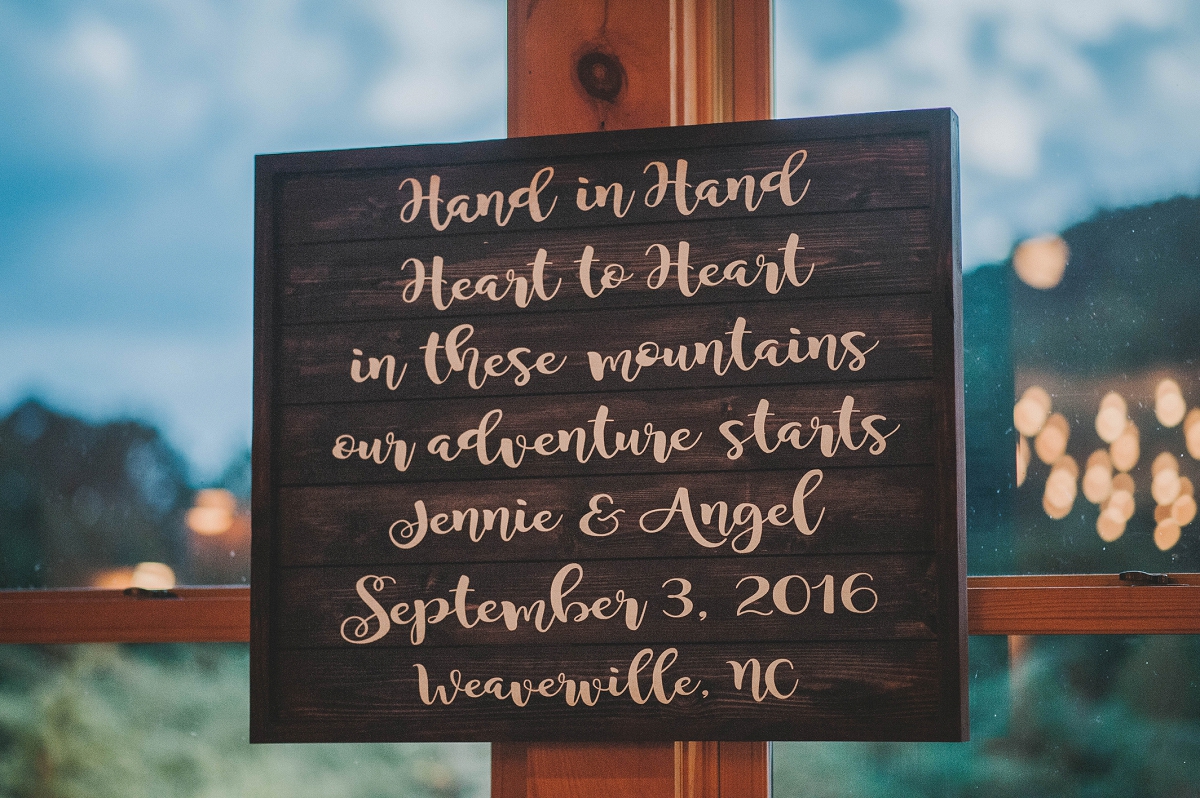 Hand in Hand
Heart to Heart
in these mountains
our adventure starts
Jennie & Angel
September 3, 2016
Weaverville, NC